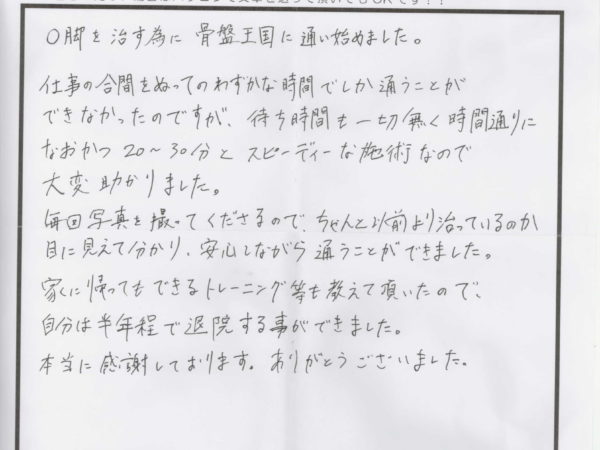 O脚を治す為に骨盤王国に通い始めました。
仕事の合間をぬってのわずかな時間でしか通うことが
できなかったのですが、待ち時間も一切無く時間通りに
なおかつ20〜30分とスピーディーな施術なので
大変助かりました。
毎回写真を撮ってくださるので、ちゃんと以前より治っているのか
目に見えて分かり、安心しながら通うことができました。
家に帰ってもできるトレーニング等も教えて頂いたので、
自分は半年程で退院する事ができました。
本当に感謝しております。ありがとうございました。